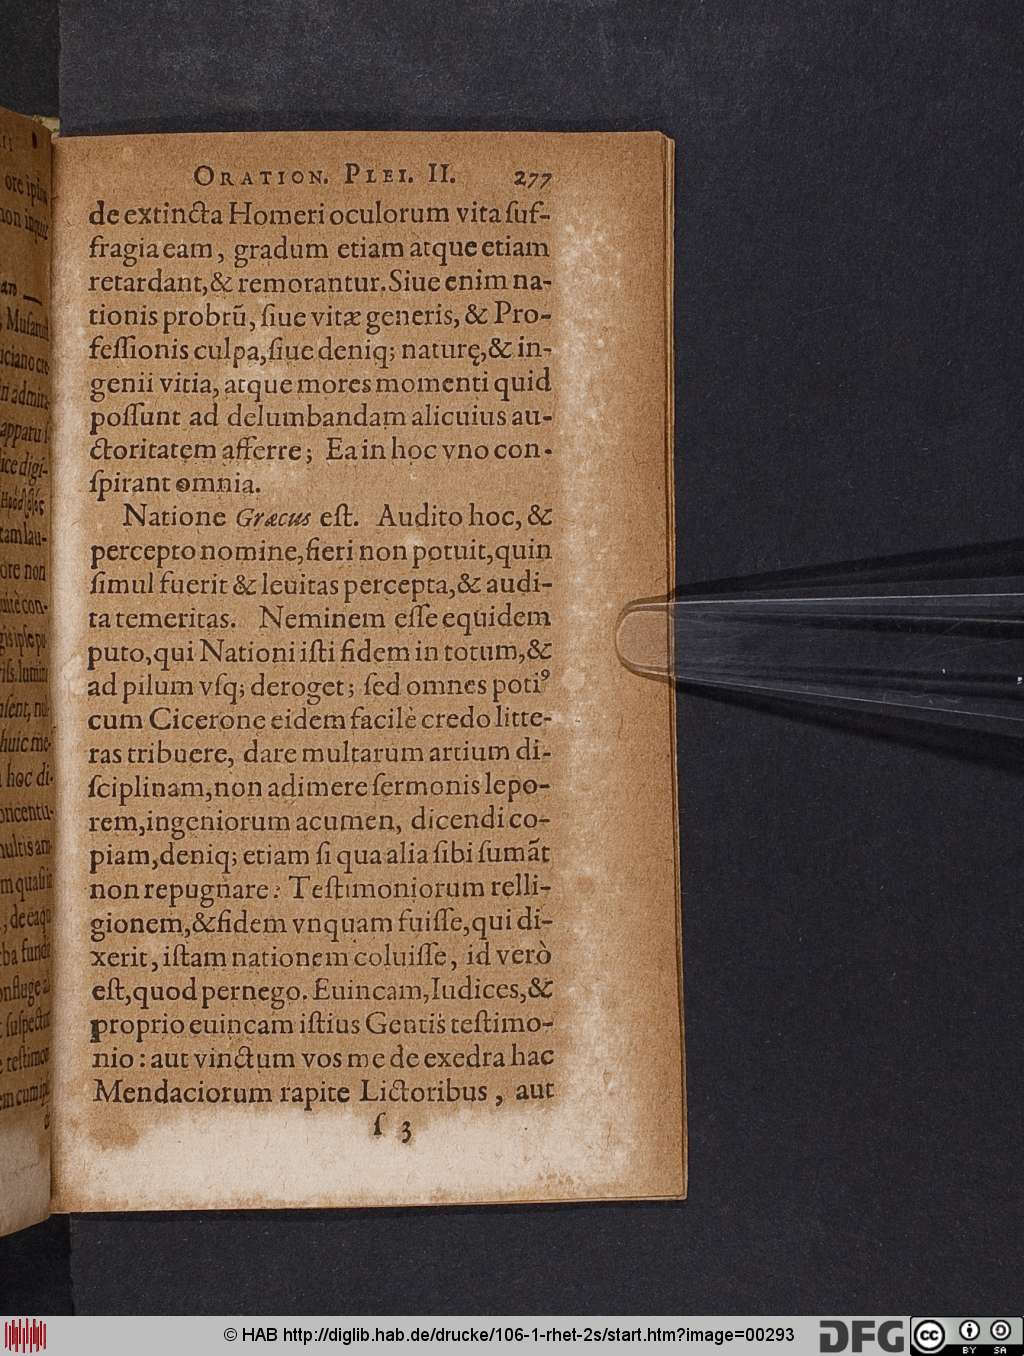 ORATION. PLEI. II. 277
de extincta Homeri oculorum vita ſuf-
fragia eam, gradum etiam atque etiam
retardant, & remorantur. Siue enim na-
tionis probrũ, ſiue vitæ generis, & Pro-
feſſionis culpa, ſiue deniq; naturę, & in-
genii vitia, atque mores momenti quid
poſſunt ad delumbandam alicuius au-
ctoritatem afferre; Ea in hoc vno con-
ſpirant omnia.
Natione Græcus eſt. Audito hoc, &
percepto nomine, fieri non potuit, quin
ſimul fuerit & leuitas percepta, & audi-
ta temeritas. Neminem eſſe equidem
puto, qui Nationi iſti fidem in totum, &
ad pilum vſq; deroget; ſed omnes potiꝰ
cum Cicerone eidem facilè credo litte-
ras tribuere, dare multarum artium di-
ſciplinam, non adimere ſermonis lepo-
rem, ingeniorum acumen, dicendi co-
piam, deniq; etiam ſi qua alia ſibi ſumãt
non repugnare: Teſtimoniorum relli-
gionem, & fidem vnquam fuiſſe, qui di-
xerit, iſtam nationem coluiſſe, id verò
eſt, quod pernego. Euincam, Iudices, &
proprio euincam iſtius Gentis teſtimo-
nio: aut vinctum vos me de exedra hac
Mendaciorum rapite Lictoribus, aut
ſ 3
© HAB http://diglib.hab.de/drucke/106-1-rhet-2s/start.htm?image=00293
DFG
cc
BY SA